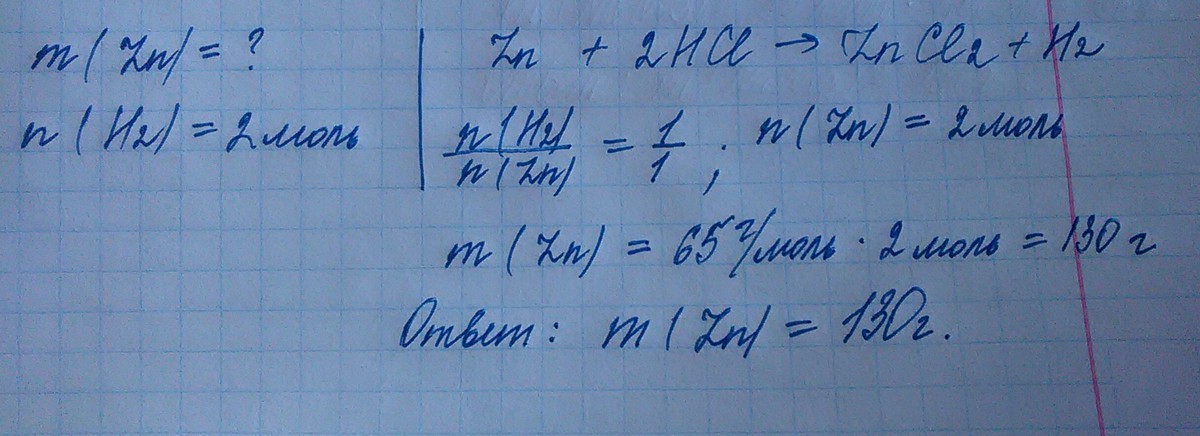 m(Zn) = ?
n(H₂) = 2 моль
Zn + 2HCl → ZnCl₂ + H₂
n(H₂)/n(Zn) = 1/1 ; n(Zn) = 2 моль
m(Zn) = 65 г/моль · 2 моль = 130 г
Ответ: m(Zn) = 130г.